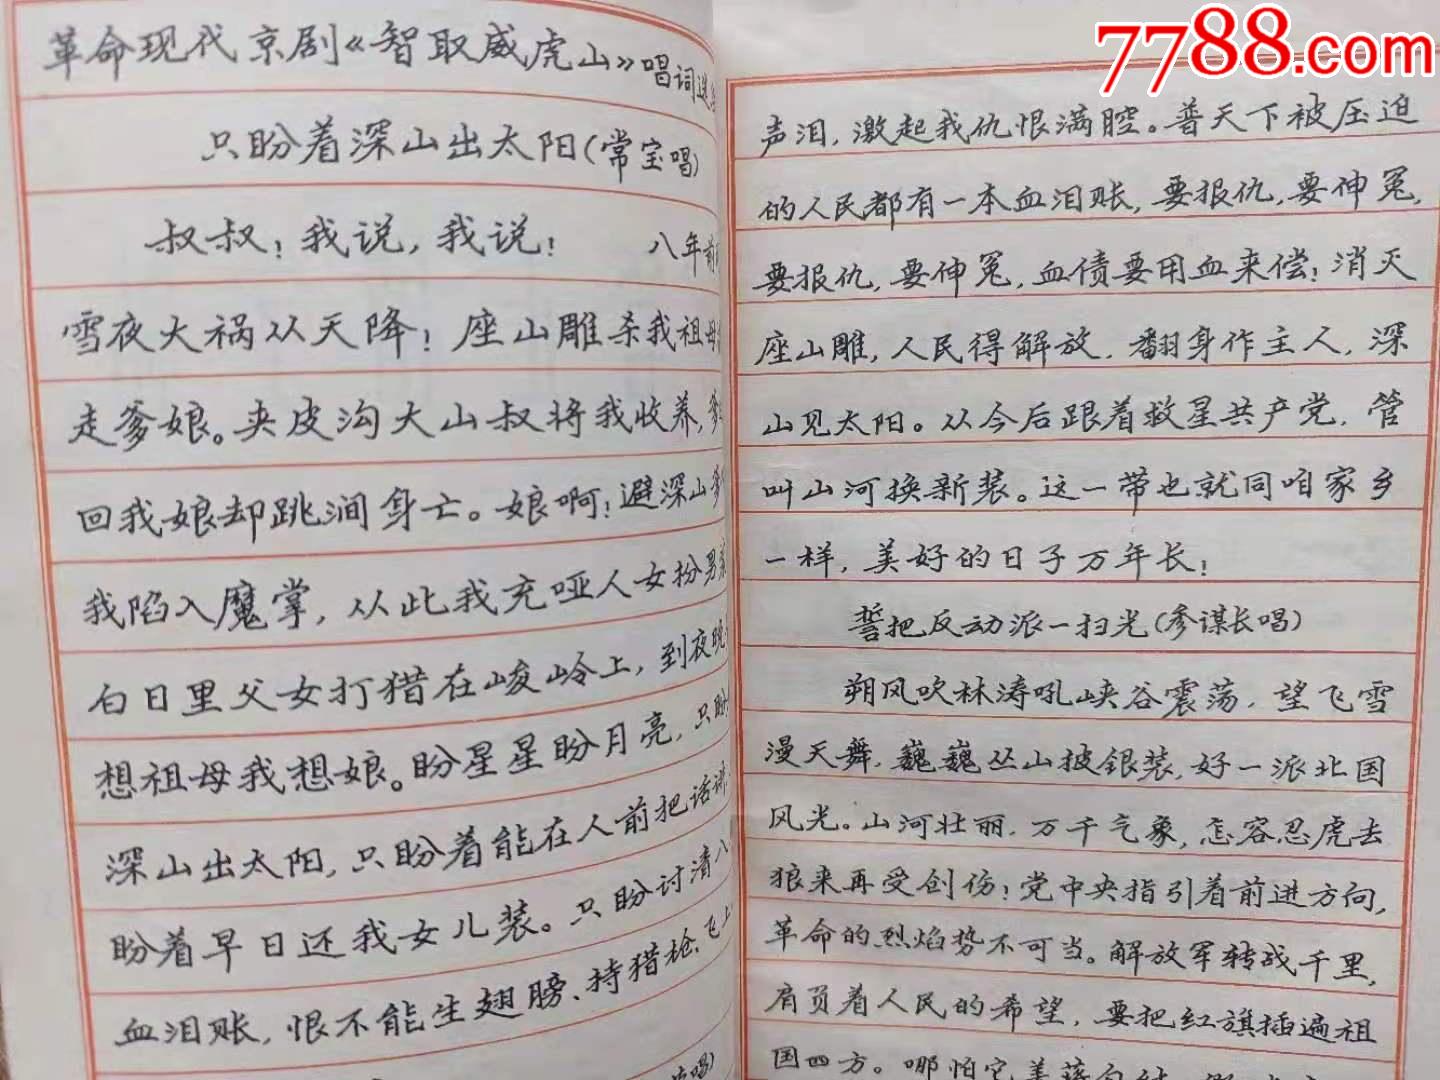 7788.com
革命现代京剧《智取威虎山》唱词选
只盼着深山出太阳(常宝唱)
叔叔!我说,我说! 八年前
雪夜大祸从天降!座山雕杀我祖母
走爹娘。夹皮沟大山叔将我收养,爹
回我娘却跳涧身亡。娘啊!避深山爹
我陷入魔掌,从此我充哑人女扮男装
白日里父女打猎在峻岭上,到夜晚
想祖母我想娘。盼星星盼月亮,只盼
深山出太阳,只盼着能在人前把话讲
盼着早日还我女儿装。只盼讨清八
血泪账,恨不能生翅膀、持猎枪、飞上
唱)
声泪,激起我仇恨满腔。普天下被压迫
的人民都有一本血泪账,要报仇,要伸冤,
要报仇,要伸冤,血债要用血来偿!消灭
座山雕,人民得解放,翻身作主人,深
山见太阳。从今后跟着救星共产党,管
叫山河换新装。这一带也就同咱家乡
一样,美好的日子万年长!
誓把反动派一扫光(参谋长唱)
朔风吹林涛吼峡谷震荡,望飞雪
漫天舞,巍巍丛山披银装,好一派北国
风光。山河壮丽,万千气象,怎容忍虎去
狼来再受创伤!党中央指引着前进方向,
革命的烈焰势不可当。解放军转战千里,
肩负着人民的希望,要把红旗插遍祖
国四方。哪怕它美蒋勾结